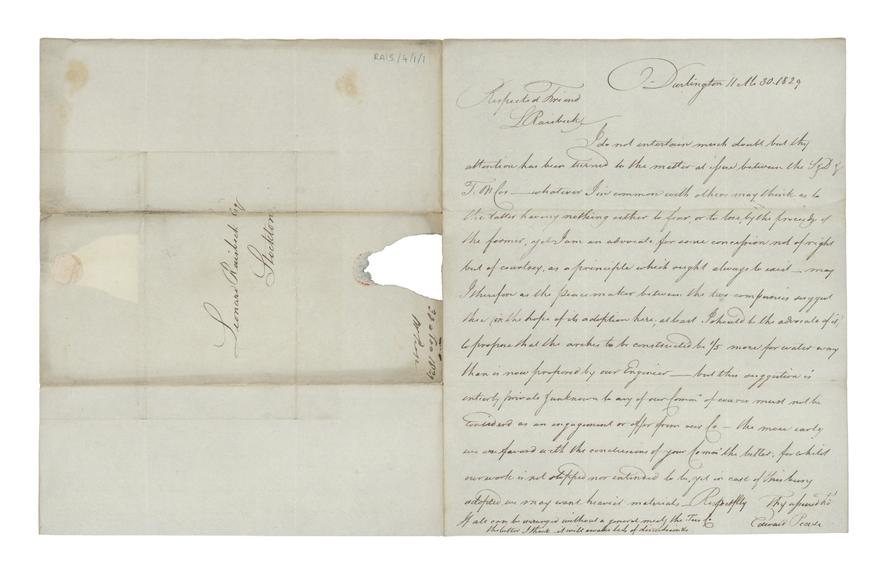 RAIS/4/1/1
Leonard Raisbeck Esq
Stockton
Darlington 11 Mo 30. 1829
Respected Friend
L Raisbeck
I do not entertain much doubt but thy
attention has been turned to the matter at issue between the S & D &
T. N Cos — whatever I in common with others may think as to
the latter having nothing either to fear, or to lose, by the proxiety of
the former, yet I am an advocate for some concession not of right
but of courtesy, as a principle which ought always to exist — may
I therefore as the peace maker between the two companies suggest
thee, in the hope of its adoption here, at least I should be the advocate of it,
to propose that the arches to be constructed be 1/5 more for water way
than is now proposed by our Engineer — but this suggestion is
entirely private & unknown to any of our Comee of course must not be
considered as an engagement or offer from our Co — the more early
we are favored with the conclusions of your Comee the better, for whilst
our work is not stopped nor intended to be, yet in case of this being
adopted we may want heavier materials — Respectfully Thy assured fd
If all can be arranged without a general meetg the Tees Co Edward Pease
the better I think it will awake lots of